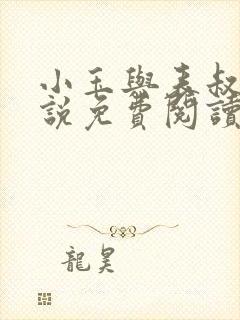 小玉與表叔
說免費閱讀
龍昊